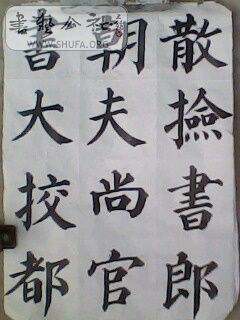 書藝公社
WWW.SHUFA.ORG
書朝散
大夫撿
挍尚書
都官郎